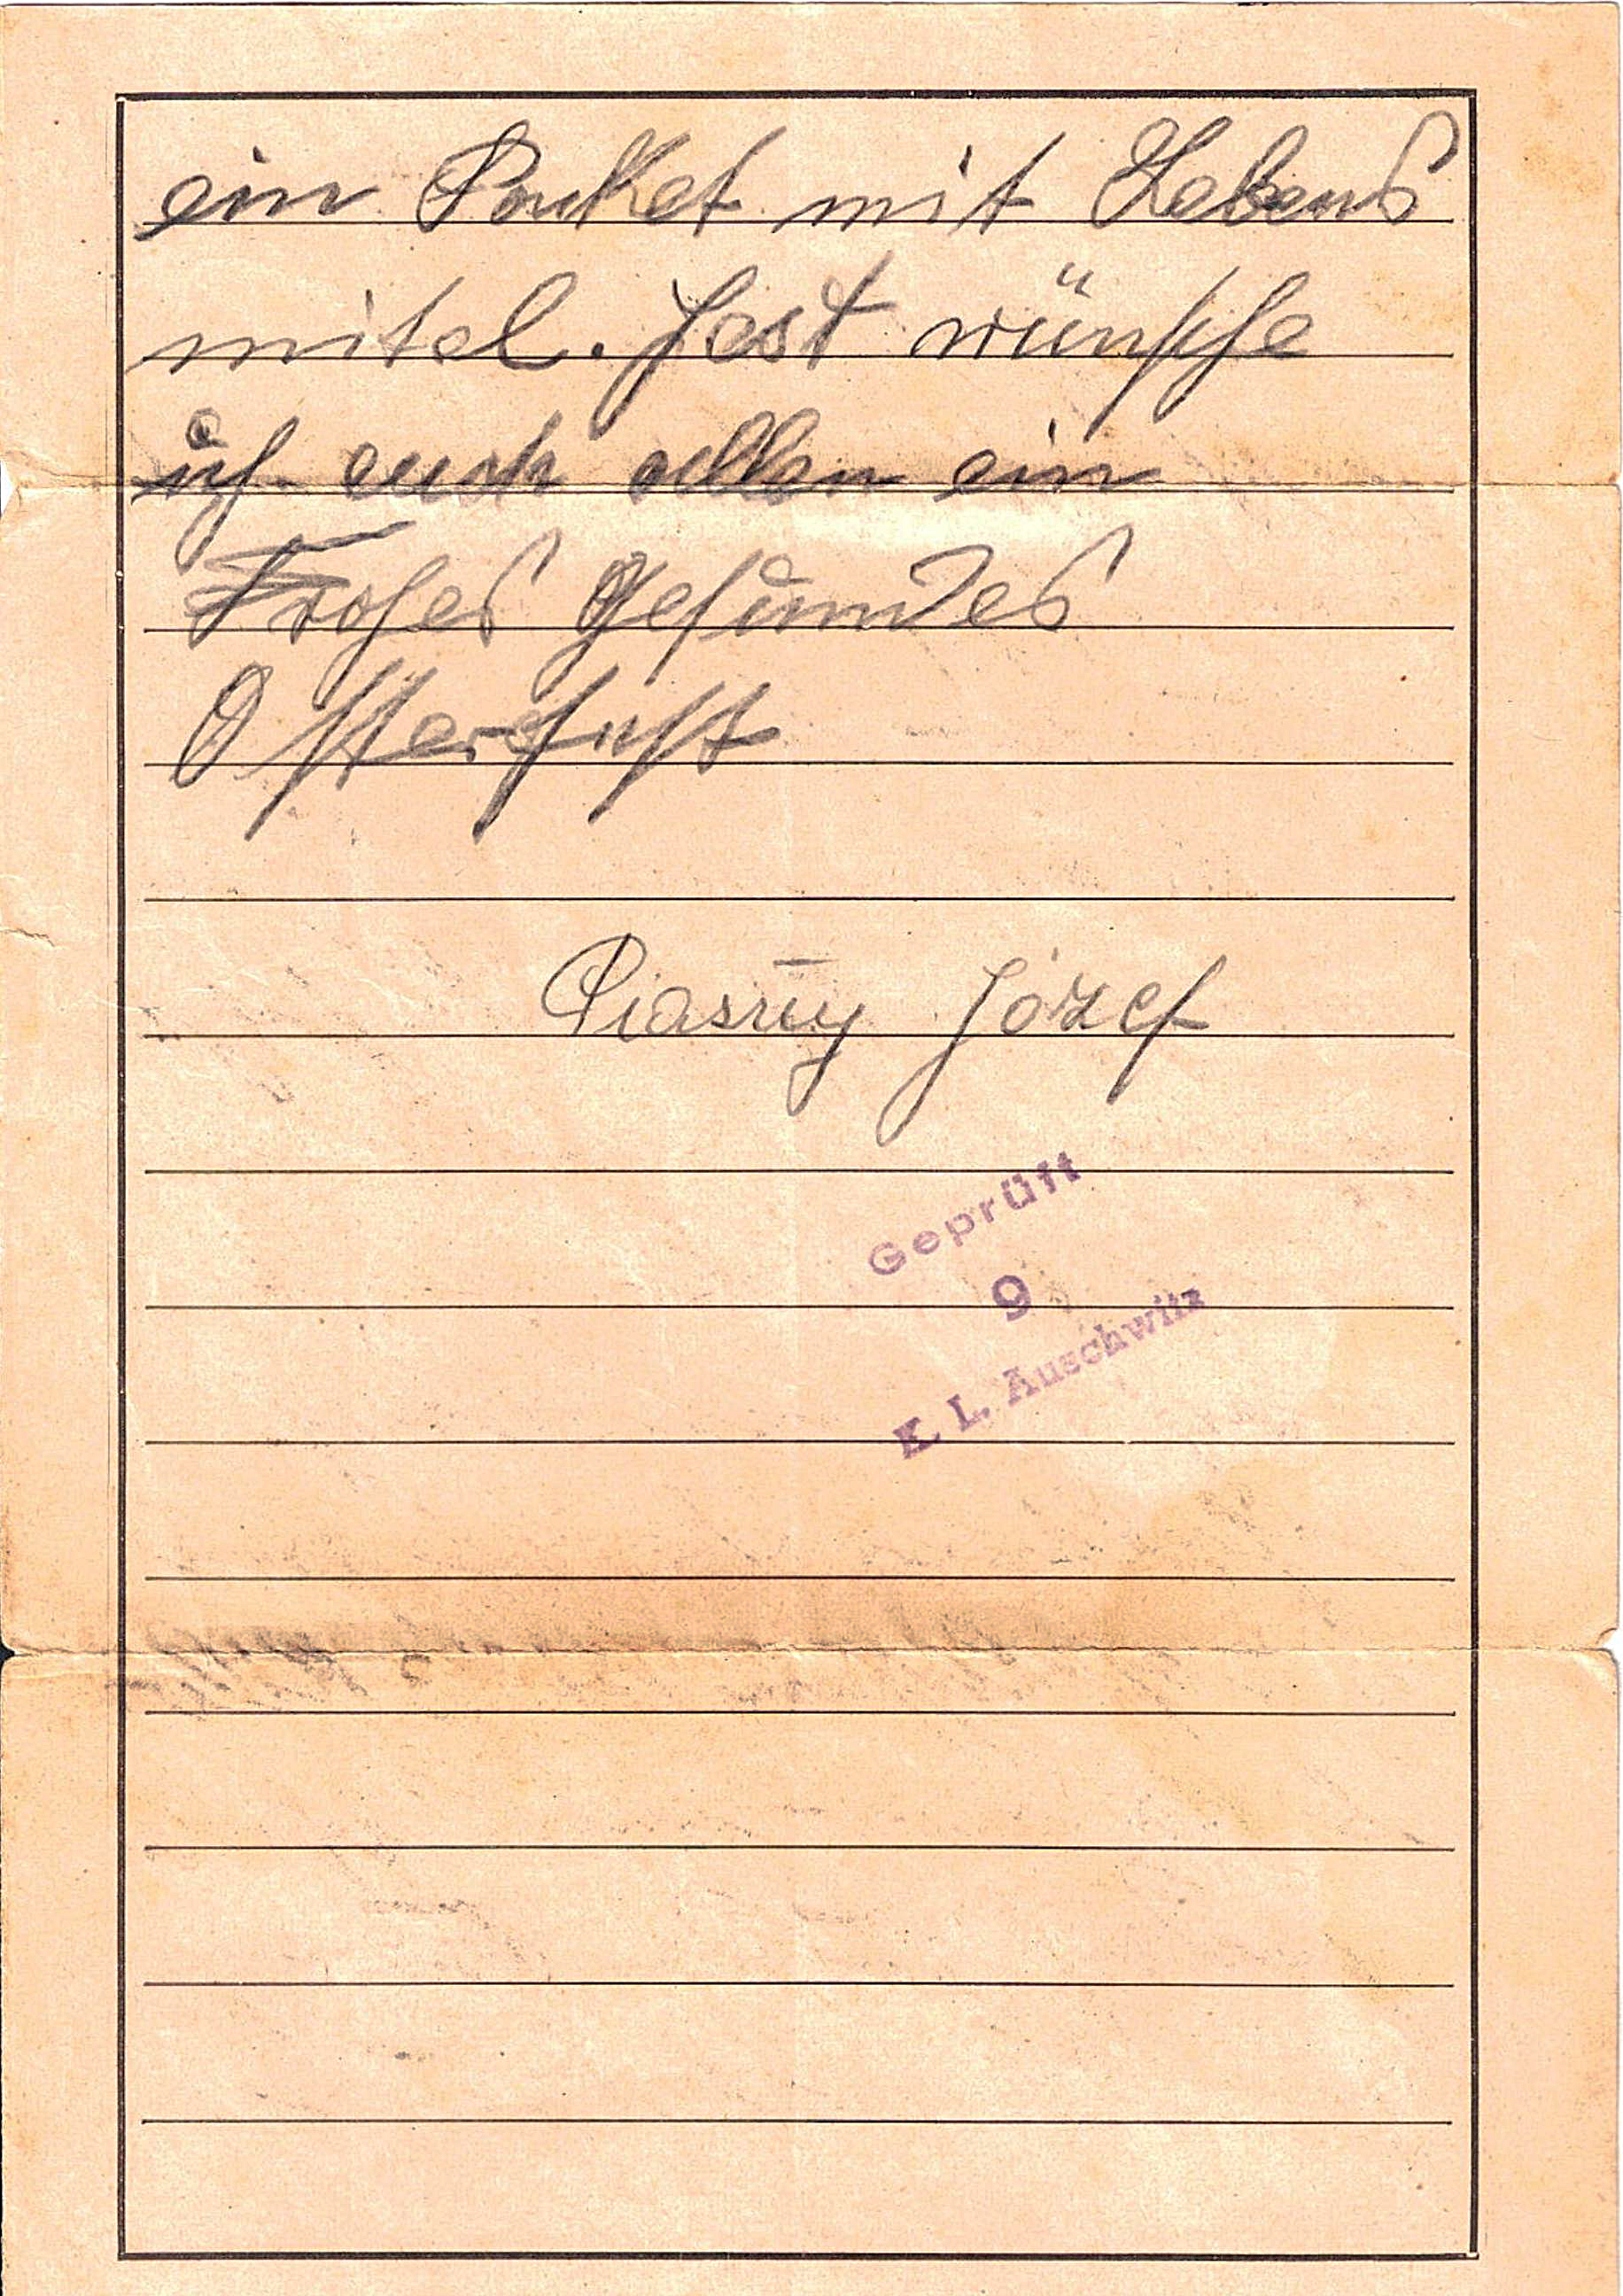 ein Pauket mit Lebens
mitel. Jest wünsche
ich euch allen ein
Frohes Gesundes
Osterfest
Piasny Józef
Geprüft
9
K. L. Auschwitz